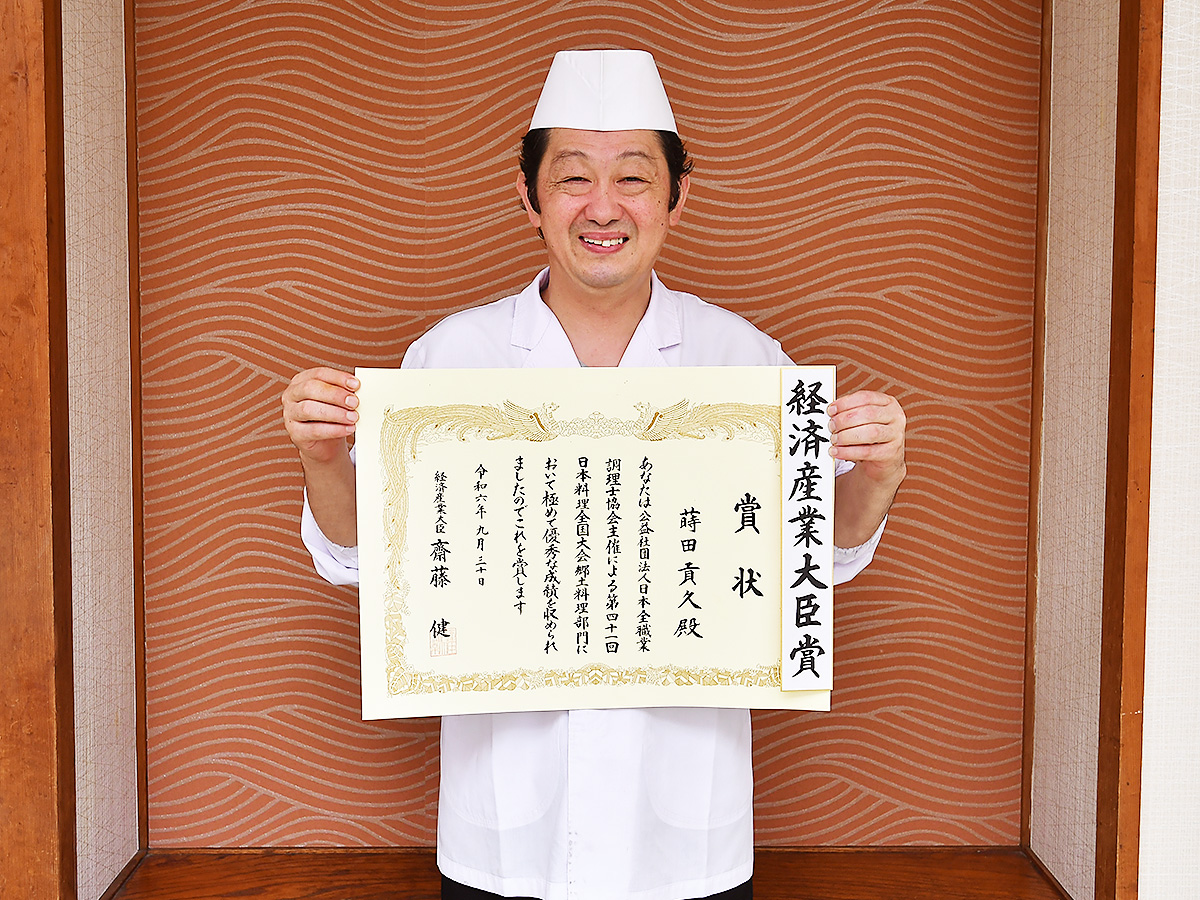 経済産業大臣賞
賞状
蒔田貢久殿
あなたは公益社団法人日本全職業
調理士協会主催による第四十一回
日本料理全国大会郷土料理部門に
おいて極めて優秀な成績を収められ
ましたのでこれを賞します
令和六年九月三十日
経済産業大臣 齋藤健